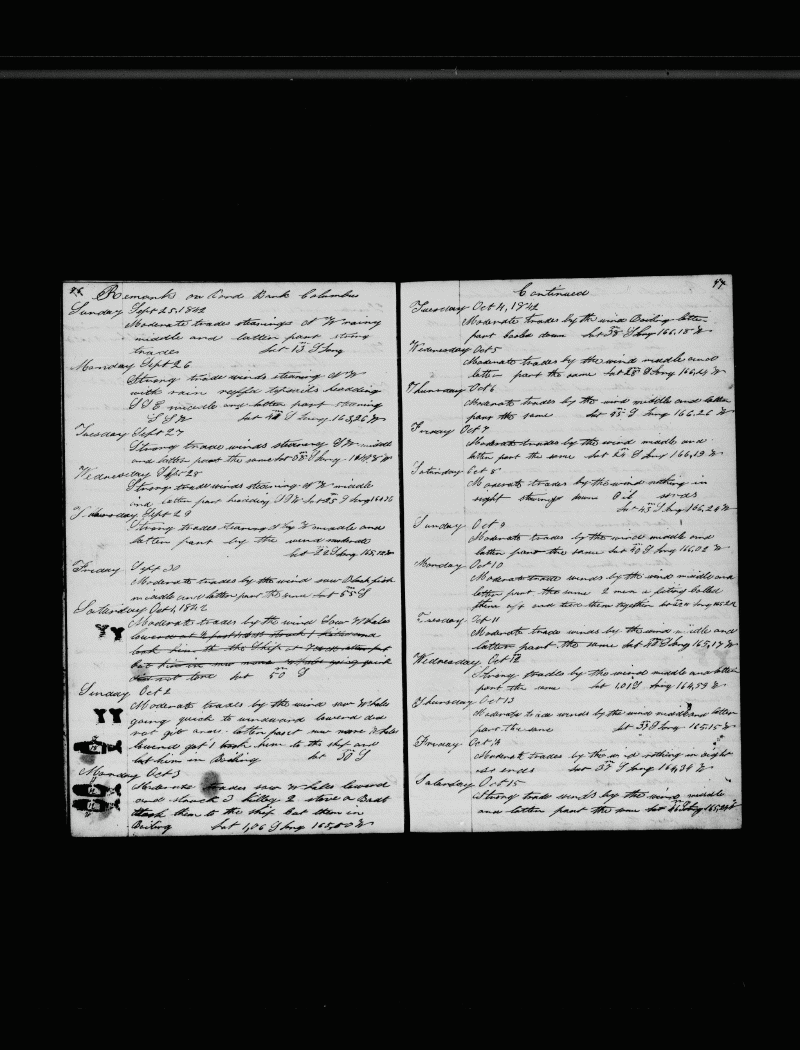 46
Remarks on Board Bark Columbus
Sunday Sept 25, 1842
Moderate trades stearing S W rainy
middle and latter part strong
trades Lat 13 S Long
Monday Sept 26
Strong trade winds stearing S W
with rain topsails heading
S S E middle and latter part stearing
S S W Lat S Long 163,26 W
Tuesday Sept 27
Strong trade winds stearing S W middle
and latter part the same Lat S Long W
Wednesday Sept 28
Strong trade winds stearing S W middle
and latter part heading S W Lat S Long
Thursday Sept 29
Strong trades stearing S by W middle and
latter part by the wind moderate
Lat S Long W
Friday Sept 30
Moderate trades by the wind saw Blackfish
middle and latter part the same Lat 55 S
Saturday Oct 1, 1842
Moderate trades by the wind Saw Whales
lowered at
took him to the Ship at
but him in
did not lore Lat 50 S
Sunday Oct 2
Moderate trades by the wind saw Whales
going quick to windward lowered did
not git anor latter part saw more Whales
lowered got 1 took him to the ship and
but him in Boiling Lat 50 S
Monday Oct 3
Moderate trades saw Whales lowered
and struck 3 killed 2 stove a Boat
took them to the ship but them in
Boiling Lat 1,06 S Long 165,50 W
47
Continued
Tuesday Oct 4, 1842
Moderate trades by the wind Boiling latter
part bailed down Lat 38 S Long 166,18 W
Wednesday Oct 5
Moderate trades by the wind middle and
latter part the same Lat 28 S Long 166,24 W
Thursday Oct 6
Moderate trades by the wind middle and latter
part the same Lat S Long 166.26 W
Friday Oct 7
Moderate trades by the wind middle and
latter part the same Lat S Long 166,19 W
Saturday Oct 8
Moderate trades by the wind nothing in
sight down Oil
Lat 43 S Long 166,24 W
Sunday Oct 9
Moderate trades by the wind middle and
latter part the same Lat 40 S Long 166,02 W
Monday Oct 10
Moderate trade winds by the wind middle and
latter part the same 2 men a fiting called
them aft and tied them together Lat Long
Tuesday Oct 11
Moderate trade winds by the wind middle and
latter part the same Lat S Long 165,17 W
Wednesday Oct 12
Strong trades by the wind middle and latter
part the same Lat 1,01 S Long 164,59 W
Thursday Oct 13
Moderate trade winds by the wind middle and latter
part the same Lat 33 S Long 165,15 W
Friday Oct 14
Moderate trades by the wind nothing in sight
so ends Lat 37 S Long 164,34 W
Saturday Oct 15
Strong trade winds by the wind middle
and latter part the same Lat S Long W